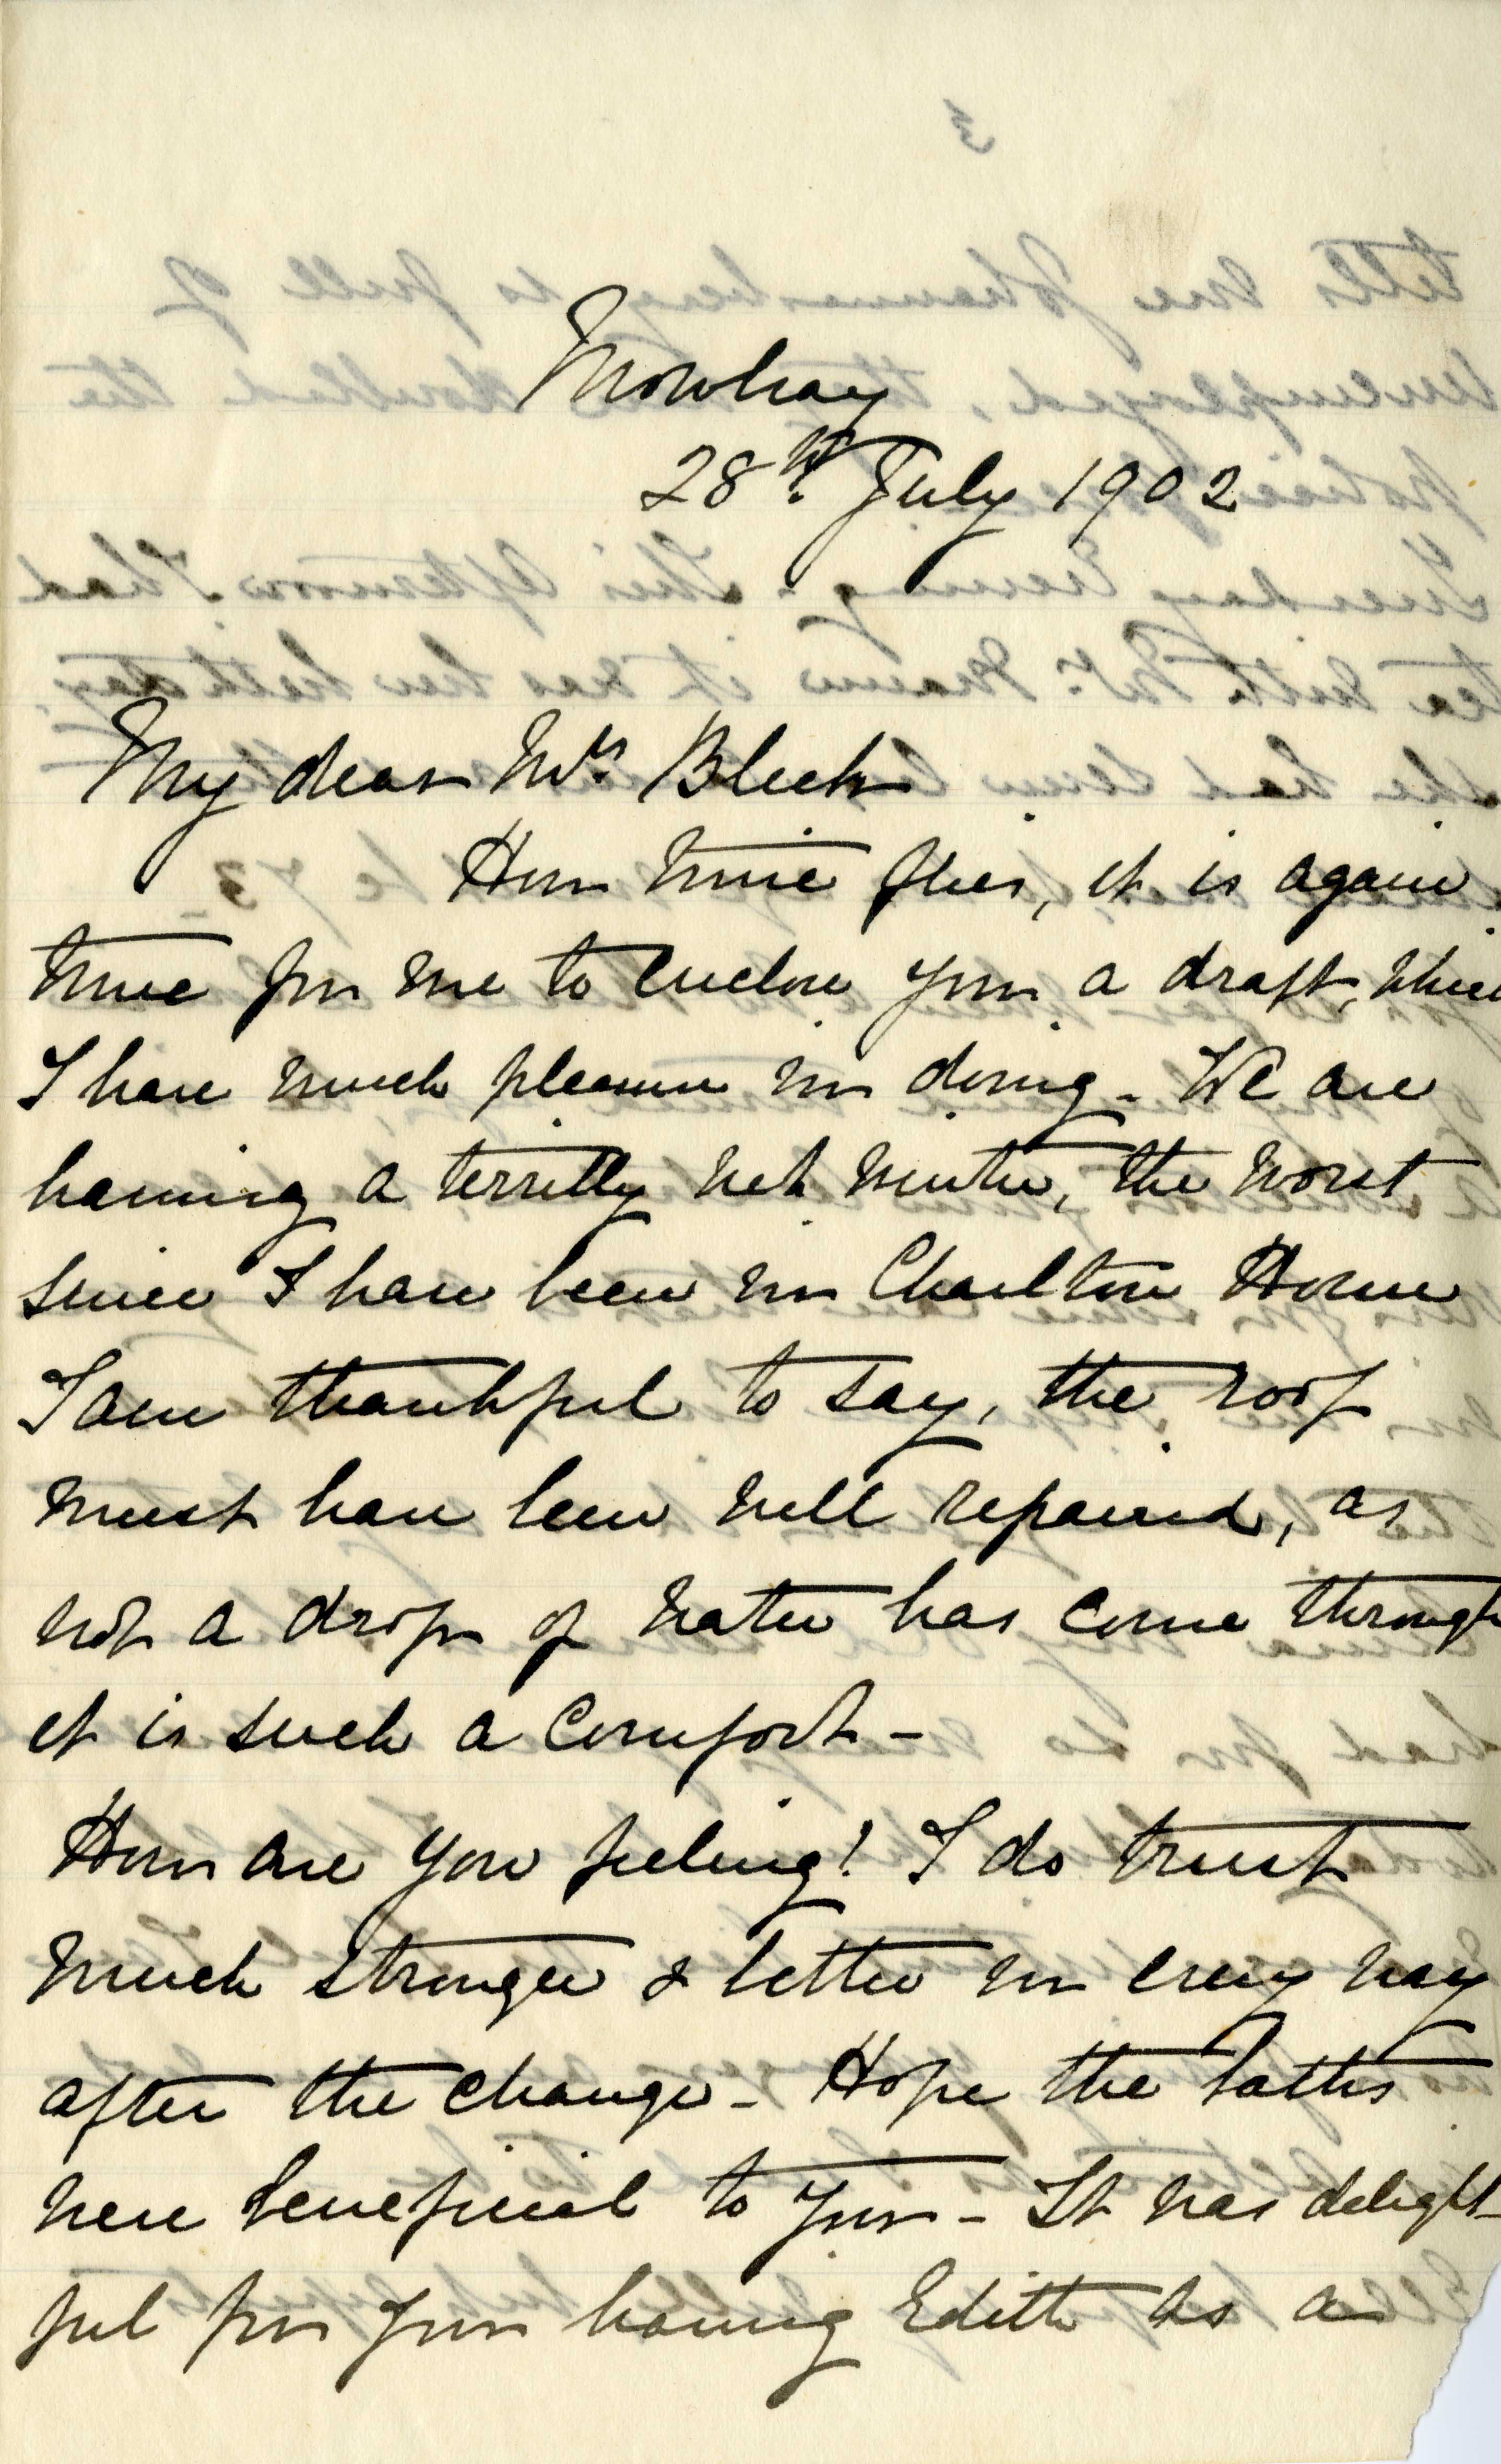 Mowbray
28th. July 1902
My dear Mrs. Bleek
How time flies, it is again
time for me to enclose you a draft, which
I have much pleasure in doing - We are
having a terribly wet winter, the worst
since I have been in Charlton House
I am thankful to say, the roof
must have been well repaired, as
not a drop of water has come through
it is such a comfort -
How are you feeling? I do trust
much stronger & better in every way
after the change - Hope the baths
were beneficial to you - It was delight-
ful for you having Edith as a